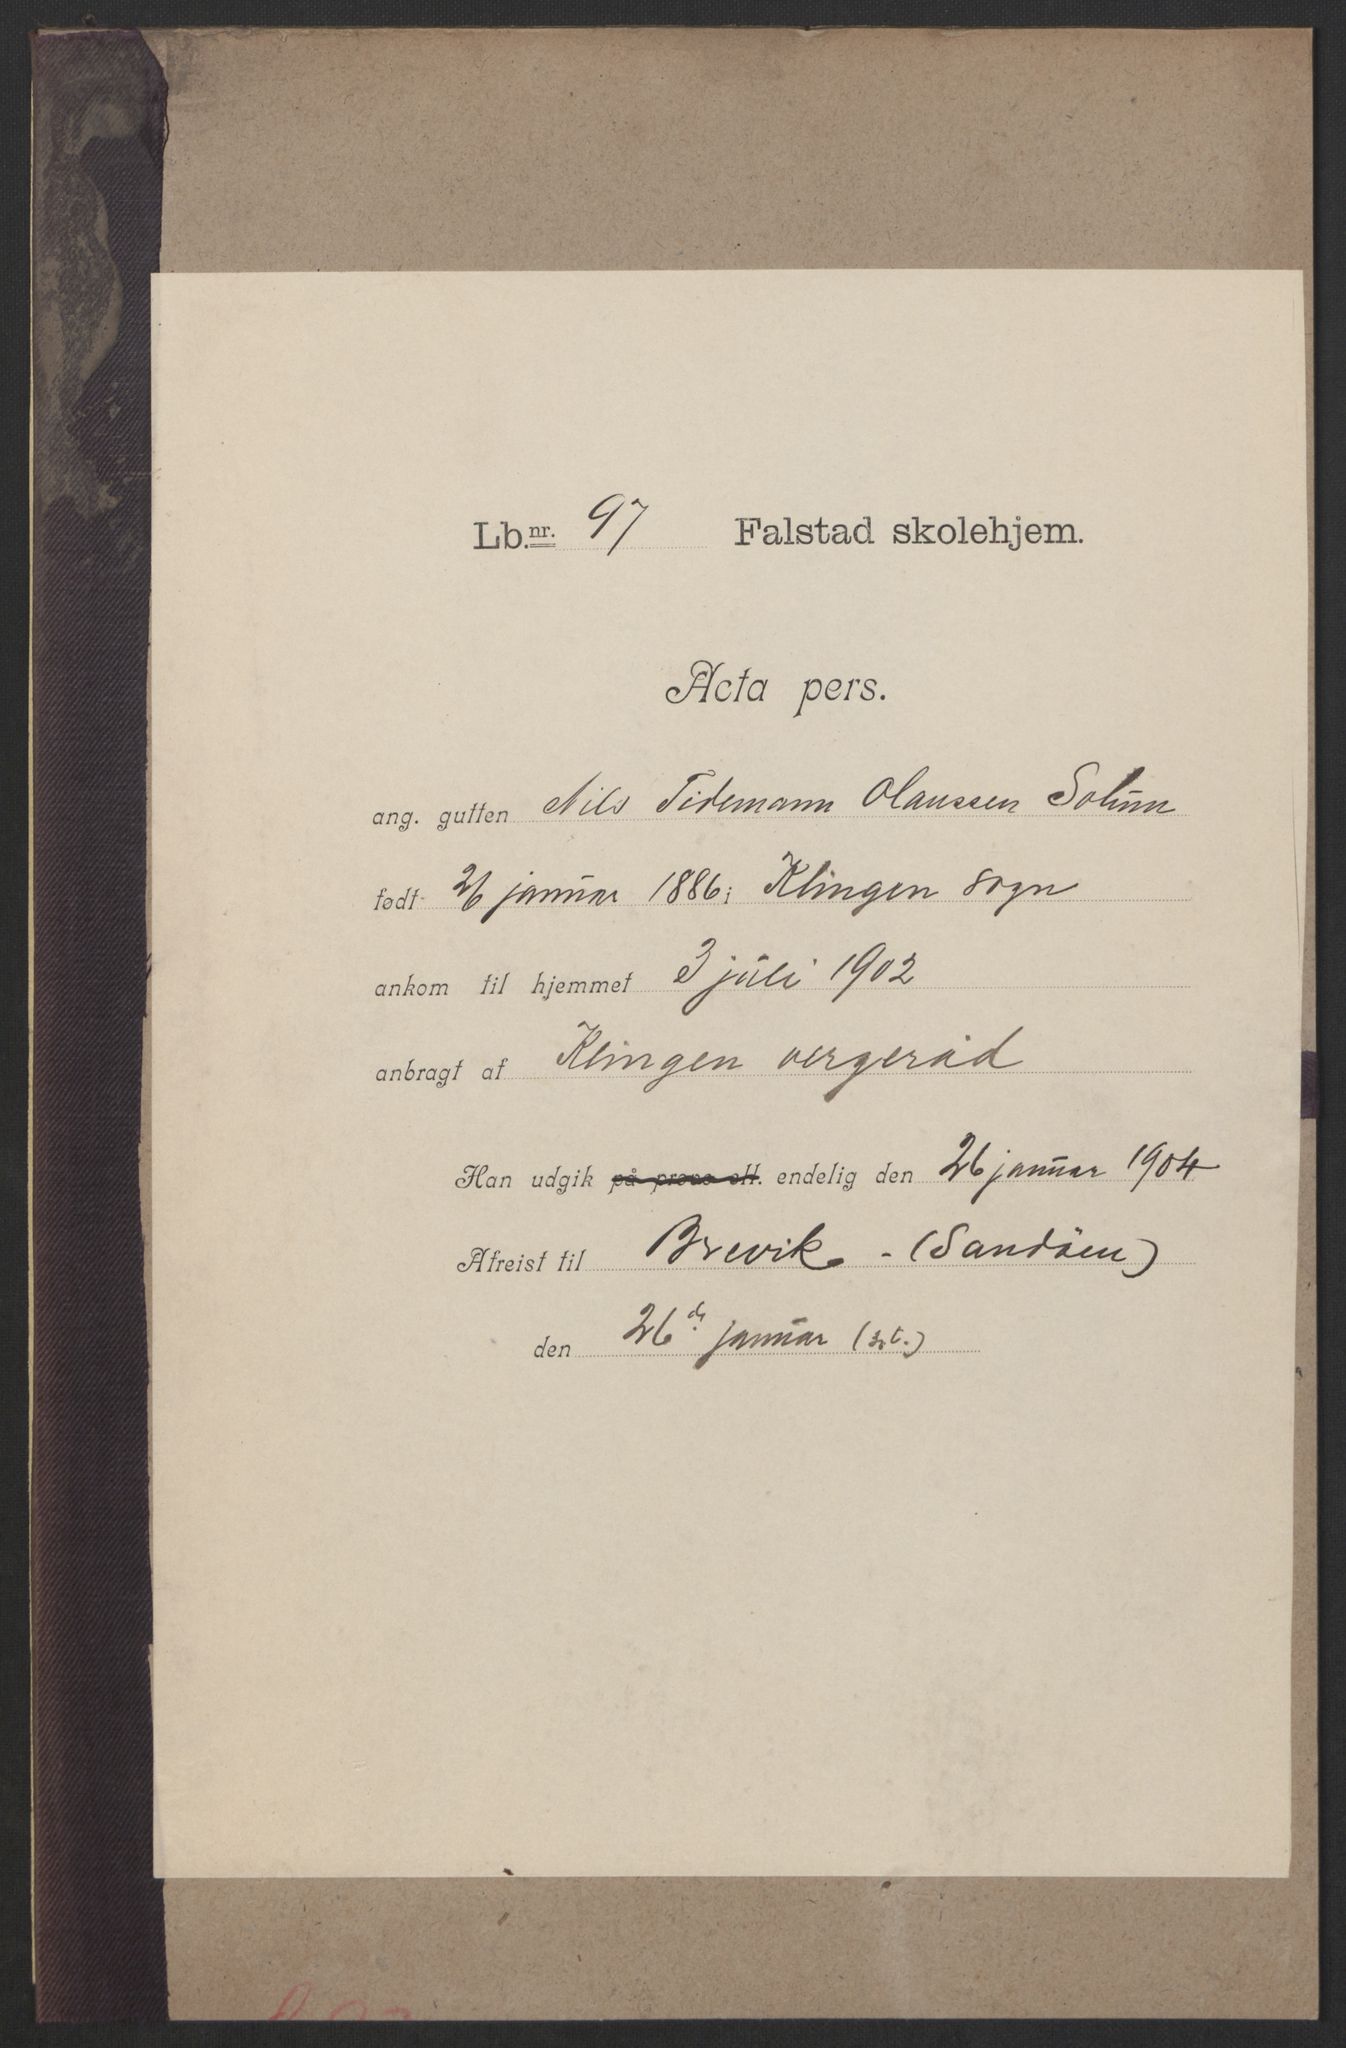 Lb.nr. 97 Falstad skolehjem.
Acta pers.
ang. gutten Nils Tidemann Olaussen Solum
født 26 januar 1886; Klingen sogn
ankom til hjemmet 3 juli 1902
anbragt af Klingen vergeråd
Han udgik på prøve ell. endelig den 26 januar 1904
Afreist til Brevik - (Sandöen)
den 26de januar